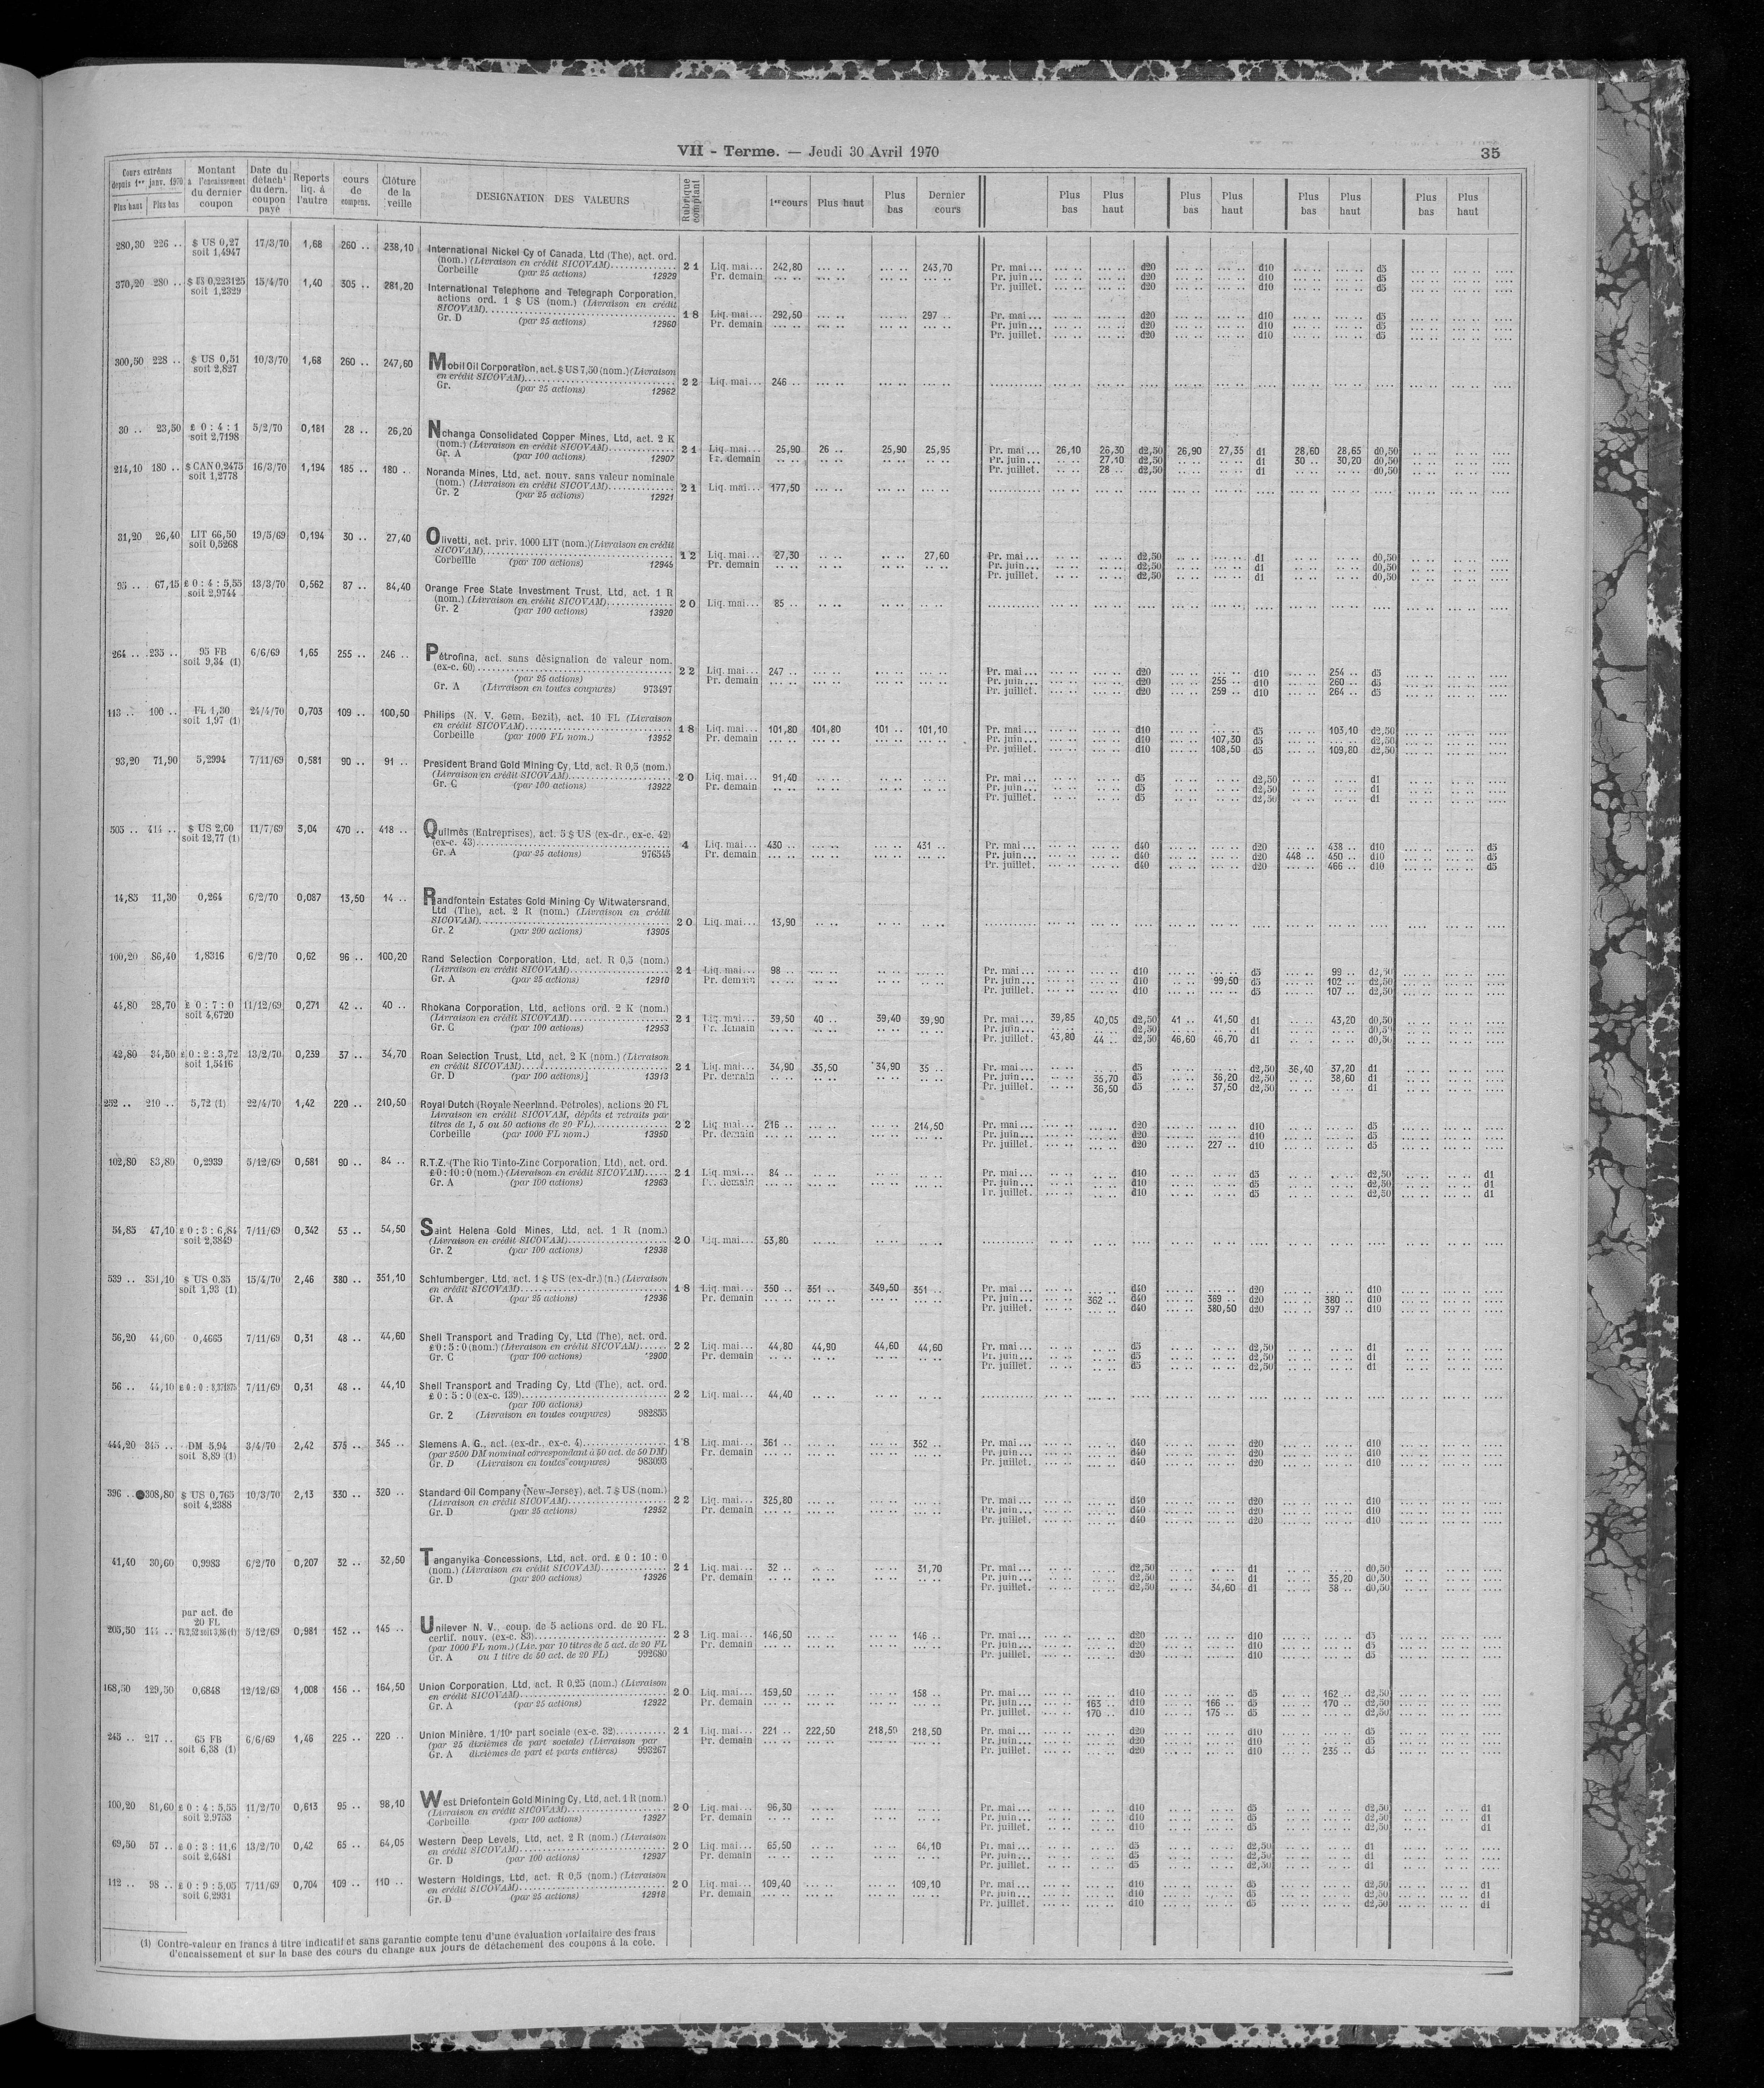 VII - Terme. — Jeudi 30 Avril 1970
35
Cours extrêmes depuis 1er janv. 1970 Plus haut Plus bas
Montant à l'encaissement du dernier coupon
Date du détacht du dern. coupon payé
Reports liq. à l'autre
cours de compens.
Clôture de la veille
DESIGNATION DES VALEURS
Rubrique comptant
1er cours Plus haut Plus bas Dernier cours
Plus bas Plus haut Plus bas Plus haut Plus bas Plus haut Plus bas Plus haut
280,30 226 .. $ US 0,27 17/3/70 1,68 260 .. 238,10 International Nickel Cy of Canada, Ltd (The), act. ord.
soit 1,4947 (nom.) (Livraison en crédit SICOVAM) 21 Liq. mai... 242,80 .... .. .... .. 243,70 Pr. mai... d20 d10 d5
Corbeille (par 25 actions) 12929 Pr. demain Pr. juin... d20 d10 d5
Pr. juillet. d20 d10 d5
370,20 280 .. 15/4/70 1,40 305 .. 281,20 International Telephone and Telegraph Corporation,
soit 1,2329 actions ord. 1 $ US (nom.) (Livraison en crédit
SICOVAM) 18 Liq. mai... 292,50 297 .. Pr. mai... d20 d10 d5
Gr. D (par 25 actions) 12960 Pr. demain Pr. juin... d20 d10 d5
Pr. juillet. d20 d10 d5
300,50 228 .. $ US 0,51 10/3/70 1,68 260 .. 247,60 Mobil Oil Corporation, act. $ US 7,50 (nom.) (Livraison
soit 2,827 en crédit SICOVAM) 22 Liq. mai... 246 ..
Gr. (par 25 actions) 12962
30 .. 23,50 £ 0 : 4 : 1 5/2/70 0,181 28 .. 26,20 Nchanga Consolidated Copper Mines, Ltd, act. 2 K
soit 2,7198 (nom.) (Livraison en crédit SICOVAM) 21 Liq. mai... 25,90 26 .. 25,90 25,95 Pr. mai... 26,10 26,30 d2,50 26,90 27,35 d1 28,60 28,65 d0,50
Gr. A (par 100 actions) 12907 Pr. demain Pr. juin... 27,10 d2,50 d1 30 .. 30,20 d0,50
Pr. juillet. 28 .. d2,50 d1 d0,50
214,10 180 .. $ CAN 0,2475 16/3/70 1,194 185 .. 180 .. Noranda Mines, Ltd, act. nouv. sans valeur nominale
soit 1,2778 (nom.) (Livraison en crédit SICOVAM) 21 Liq. mai... 177,50
Gr. 2 (par 25 actions) 12921
31,20 26,40 LIT 66,50 19/5/69 0,194 30 .. 27,40 Olivetti, act. priv. 1000 LIT (nom.) (Livraison en crédit
soit 0,5268 SICOVAM) 12 Liq. mai... 27,30 27,60 Pr. mai... d2,50 d1 d0,50
Corbeille (par 100 actions) 12945 Pr. demain Pr. juin... d2,50 d1 d0,50
Pr. juillet. d2,50 d1 d0,50
95 .. 67,15 £ 0 : 4 : 5,55 13/3/70 0,562 87 .. 84,40 Orange Free State Investment Trust, Ltd, act. 1 R
soit 2,9744 (nom.) (Livraison en crédit SICOVAM) 20 Liq. mai... 85 ..
Gr. 2 (par 100 actions) 13920
264 .. 235 .. 95 FB 6/6/69 1,65 255 .. 246 .. Pétrofina, act. sans désignation de valeur nom.
soit 9,34 (1) (ex-c. 60) 22 Liq. mai... 247 .. Pr. mai... d20 d10 254 .. d5
(par 25 actions) Pr. demain Pr. juin... d20 255 .. d10 260 .. d5
Gr. A (Livraison en toutes coupures) 973497 Pr. juillet. d20 259 .. d10 264 .. d5
113 .. 100 .. FL 1,30 24/4/70 0,703 109 .. 100,50 Philips (N. V. Gem. Bezit), act. 10 FL (Livraison
soit 1,97 (1) en crédit SICOVAM) 18 Liq. mai... 101,80 101,80 101 .. 101,10 Pr. mai... d10 d5 103,10 d2,50
Corbeille (par 1000 FL nom.) 13952 Pr. demain Pr. juin... d10 107,30 d5 d2,50
Pr. juillet. d10 108,50 d5 109,80 d2,50
93,20 71,90 5,2994 7/11/69 0,581 90 .. 91 .. President Brand Gold Mining Cy, Ltd, act. R 0,5 (nom.)
(Livraison en crédit SICOVAM) 20 Liq. mai... 91,40 Pr. mai... d5 d2,50 d1
Gr. C (par 100 actions) 13922 Pr. demain Pr. juin... d5 d2,50 d1
Pr. juillet. d5 d2,50 d1
505 .. 414 .. $ US 2,60 11/7/69 3,04 470 .. 418 .. Quilmès (Entreprises), act. 5 $ US (ex-dr., ex-c. 42)
soit 12,77 (1) (ex-c. 43) 4 Liq. mai... 430 .. 431 .. Pr. mai... d40 d20 438 .. d10 d5
Gr. A (par 25 actions) 976545 Pr. demain Pr. juin... d40 d20 448 .. 450 .. d10 d5
Pr. juillet. d40 d20 466 .. d10 d5
14,85 11,30 0,264 6/2/70 0,087 13,50 14 .. Randfontein Estates Gold Mining Cy Witwatersrand,
Ltd (The), act. 2 R (nom.) (Livraison en crédit
SICOVAM) 20 Liq. mai... 13,90
Gr. 2 (par 200 actions) 13905
100,20 86,40 1,8316 6/2/70 0,62 96 .. 100,20 Rand Selection Corporation, Ltd, act. R 0,5 (nom.)
(Livraison en crédit SICOVAM) 21 Liq. mai... 98 .. Pr. mai... d10 d5 99 .. d2,50
Gr. A (par 25 actions) 12910 Pr. demain Pr. juin... d10 99,50 d5 102 .. d2,50
Pr. juillet. d10 d5 107 .. d2,50
44,80 28,70 £ 0 : 7 : 0 11/12/69 0,271 42 .. 40 .. Rhokana Corporation, Ltd, actions ord. 2 K (nom.)
soit 4,6720 (Livraison en crédit SICOVAM) 21 Liq. mai... 39,50 40 .. 39,40 39,90 Pr. mai... 39,85 40,05 d2,50 41 .. 41,50 d1 43,20 d0,50
Gr. C (par 100 actions) 12953 Pr. demain Pr. juin... d2,50 d1 d0,50
Pr. juillet. 43,80 44 .. d2,50 46,60 46,70 d1 d0,50
42,80 34,50 £ 0 : 2 : 3,72 13/2/70 0,239 37 .. 34,70 Roan Selection Trust, Ltd, act. 2 K (nom.) (Livraison
soit 1,5416 en crédit SICOVAM) 21 Liq. mai... 34,90 35,50 34,90 35 .. Pr. mai... d5 d2,50 36,40 37,20 d1
Gr. D (par 100 actions) 13913 Pr. demain Pr. juin... 35,70 d5 36,20 d2,50 38,60 d1
Pr. juillet. 36,50 d5 37,50 d2,50 d1
252 .. 210 .. 5,72 (1) 22/4/70 1,42 220 .. 210,50 Royal Dutch (Royale Neerland. Petroles), actions 20 FL
Livraison en crédit SICOVAM, dépôts et retraits par
titres de 1, 5 ou 50 actions de 20 FL) 22 Liq. mai... 216 .. 214,50 Pr. mai... d20 d10 d5
Corbeille (par 1000 FL nom.) 13950 Pr. demain Pr. juin... d20 d10 d5
Pr. juillet. d20 227 .. d10 d5
102,80 83,80 0,2939 5/12/69 0,581 90 .. 84 .. R.T.Z. (The Rio Tinto-Zinc Corporation, Ltd), act. ord.
£ 0 : 10 : 0 (nom.) (Livraison en crédit SICOVAM) 21 Liq. mai... 84 .. Pr. mai... d10 d5 d2,50 d1
Gr. A (par 100 actions) 12963 Pr. demain Pr. juin... d10 d5 d2,50 d1
Pr. juillet. d10 d5 d2,50 d1
54,85 47,10 £ 0 : 3 : 6,84 7/11/69 0,342 53 .. 54,50 Saint Helena Gold Mines, Ltd, act. 1 R (nom.)
soit 2,3849 (Livraison en crédit SICOVAM) 20 Liq. mai... 53,80
Gr. 2 (par 100 actions) 12938
539 .. 351,10 $ US 0,35 15/4/70 2,46 380 .. 351,10 Schlumberger, Ltd, act. 1 $ US (ex-dr.) (n.) (Livraison
soit 1,93 (1) en crédit SICOVAM) 18 Liq. mai... 350 .. 351 .. 349,50 351 .. Pr. mai... d40 d20 d10
Gr. A (par 25 actions) 12936 Pr. demain Pr. juin... 362 .. d40 369 .. d20 380 .. d10
Pr. juillet. d40 380,50 d20 397 .. d10
56,20 44,60 0,4665 7/11/69 0,31 48 .. 44,60 Shell Transport and Trading Cy, Ltd (The), act. ord.
£ 0 : 5 : 0 (nom.) (Livraison en crédit SICOVAM) 22 Liq. mai... 44,80 44,90 44,60 44,60 Pr. mai... d5 d2,50 d1
Gr. C (par 100 actions) 2900 Pr. demain Pr. juin... d5 d2,50 d1
Pr. juillet. d5 d2,50 d1
56 .. 44,10 7/11/69 0,31 48 .. 44,10 Shell Transport and Trading Cy, Ltd (The), act. ord.
£ 0 : 5 : 0 (ex-c. 139) 22 Liq. mai... 44,40
(par 100 actions)
Gr. 2 (Livraison en toutes coupures) 982855
444,20 345 .. DM 5,94 3/4/70 2,42 375 .. 345 .. Siemens A. G., act. (ex-dr., ex-c. 4) 18 Liq. mai... 361 .. 352 .. Pr. mai... d40 d20 d10
soit 8,89 (1) (par 2500 DM nominal correspondant à 50 act. de 50 DM) Pr. demain Pr. juin... d40 d20 d10
Gr. D (Livraison en toutes coupures) 983093 Pr. juillet. d40 d20 d10
396 .. 308,80 $ US 0,765 10/3/70 2,13 330 .. 320 .. Standard Oil Company (New-Jersey), act. 7 $ US (nom.)
soit 4,2388 (Livraison en crédit SICOVAM) 22 Liq. mai... 325,80 Pr. mai... d40 d20 d10
Gr. D (par 25 actions) 12952 Pr. demain Pr. juin... d40 d20 d10
Pr. juillet. d40 d20 d10
41,40 30,60 0,9983 6/2/70 0,207 32 .. 32,50 Tanganyika Concessions, Ltd, act. ord. £ 0 : 10 : 0
(nom.) (Livraison en crédit SICOVAM) 21 Liq. mai... 32 .. 31,70 Pr. mai... d2,50 d1 d0,50
Gr. D (par 200 actions) 13926 Pr. demain Pr. juin... d2,50 d1 35,20 d0,50
Pr. juillet. d2,50 34,60 d1 38 .. d0,50
par act. de
20 FL
205,50 144 .. FL 2,52 soit 3,86 (1) 5/12/69 0,981 152 .. 145 .. Unilever N. V., coup. de 5 actions ord. de 20 FL,
certif. nouv. (ex-c. 83) 23 Liq. mai... 146,50 146 .. Pr. mai... d20 d10 d5
(par 1000 FL nom.) (Liv. par 10 titres de 5 act. de 20 FL Pr. demain Pr. juin... d20 d10 d5
Gr. A ou 1 titre de 50 act. de 20 FL) 992680 Pr. juillet. d20 d10 d5
168,50 129,50 0,6848 12/12/69 1,008 156 .. 164,50 Union Corporation, Ltd, act. R 0,25 (nom.) (Livraison
en crédit SICOVAM) 20 Liq. mai... 159,50 158 .. Pr. mai... d10 d5 162 .. d2,50
Gr. A (par 25 actions) 12922 Pr. demain Pr. juin... 163 .. d10 166 .. d5 170 .. d2,50
Pr. juillet. 170 .. d10 175 .. d5 d2,50
245 .. 217 .. 65 FB 6/6/69 1,46 225 .. 220 .. Union Minière, 1/10e part sociale (ex-c. 32) 21 Liq. mai... 221 .. 222,50 218,50 218,50 Pr. mai... d20 d10 d5
soit 6,38 (1) (par 25 dixièmes de part sociale) (Livraison par Pr. demain Pr. juin... d20 d10 d5
Gr. A dixièmes de part et parts entières) 993267 Pr. juillet. d20 d10 235 .. d5
100,20 81,60 £ 0 : 4 : 5,55 11/2/70 0,613 95 .. 98,10 West Driefontein Gold Mining Cy, Ltd, act. 1 R (nom.)
soit 2,9753 (Livraison en crédit SICOVAM) 20 Liq. mai... 96,30 Pr. mai... d10 d5 d2,50 d1
Corbeille (par 100 actions) 13927 Pr. demain Pr. juin... d10 d5 d2,50 d1
Pr. juillet. d10 d5 d2,50 d1
69,50 57 .. £ 0 : 3 : 11,6 13/2/70 0,42 65 .. 64,05 Western Deep Levels, Ltd, act. 2 R (nom.) (Livraison
soit 2,6481 en crédit SICOVAM) 20 Liq. mai... 65,50 64,10 Pr. mai... d5 d2,50 d1
Gr. D (par 100 actions) 12937 Pr. demain Pr. juin... d5 d2,50 d1
Pr. juillet. d5 d2,50 d1
112 .. 98 .. £ 0 : 9 : 5,05 7/11/69 0,704 109 .. 110 .. Western Holdings, Ltd, act. R 0,5 (nom.) (Livraison
soit 6,2931 en crédit SICOVAM) 20 Liq. mai... 109,40 109,10 Pr. mai... d10 d5 d2,50 d1
Gr. D (par 25 actions) 12918 Pr. demain Pr. juin... d10 d5 d2,50 d1
Pr. juillet. d10 d5 d2,50 d1
(1) Contre-valeur en francs à titre indicatif et sans garantie compte tenu d'une évaluation forfaitaire des frais
d'encaissement et sur la base des cours du change aux jours de détachement des coupons à la cote.